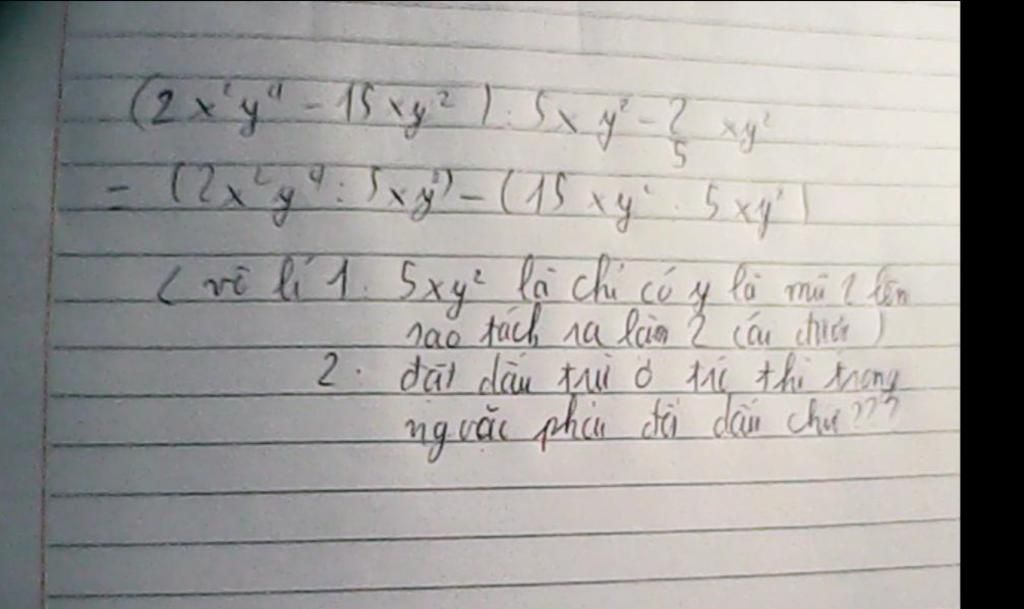 (2x²y⁴ - 15xy²) : 5xy² - 2/5 xy²
= (2x²y⁴ : 5xy²) - (15xy² : 5xy²)
(vô lí 1. 5xy² là chỉ có y là mũ 2 lên
sao tách ra làm 2 cái được)
2. đặt dấu trừ ở trc thì trong
ngoặc phải đổi dấu chứ???